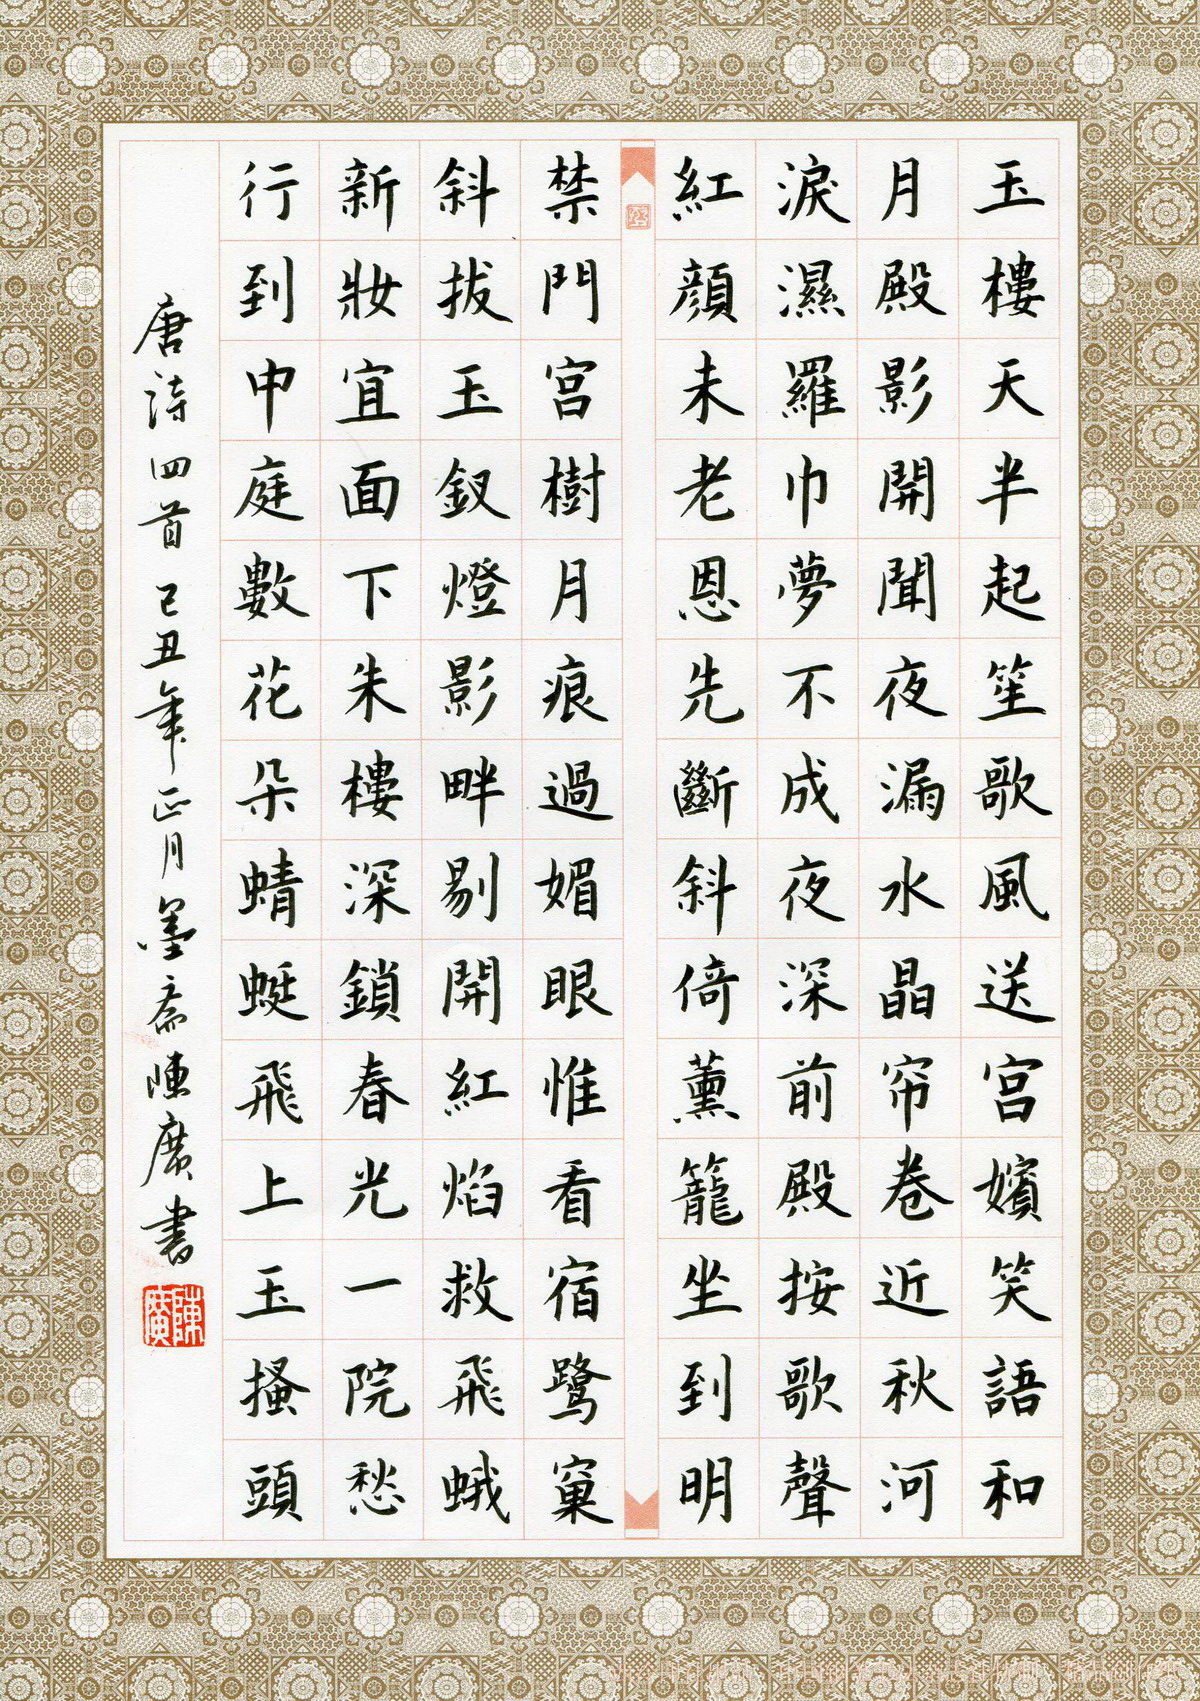 玉樓天半起笙歌風送宮嬪笑語和
月殿影開聞夜漏水晶帘卷近秋河
淚濕羅巾夢不成夜深前殿按歌聲
紅顏未老恩先斷斜倚薰籠坐到明
禁門宮樹月痕過媚眼惟看宿鹭窠
斜拔玉釵燈影畔剔開紅焰救飛蛾
新妝宜面下朱樓深鎖春光一院愁
行到中庭數花朵蜻蜓飛上玉搔頭
唐詩四首己丑年正月墨斋陳廣書
陳廣